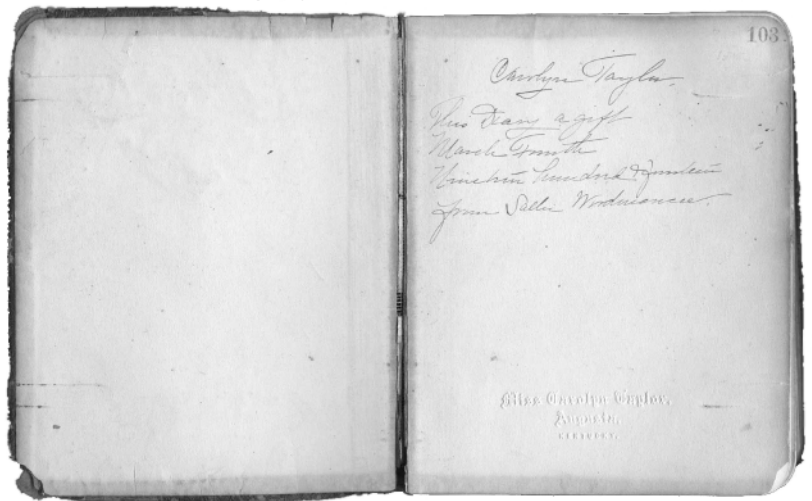 103
Carolyn Taylor.
This Diary a gift
March Fourth
Nineteen hundred &
from Sallie
Miss Carolyn Taylor,
Augusta,
KENTUCKY.